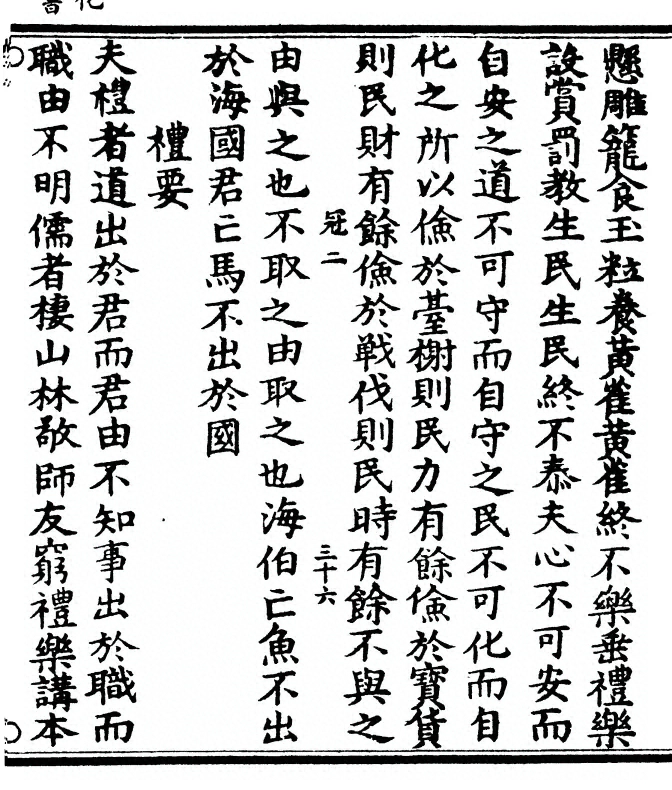 懸雕籠食玉粒養黃雀黃雀終不樂垂禮樂
設賞罰教生民生民終不泰夫心不可安而
自安之道不可守而自守之民不可化而自
化之所以儉於臺榭則民力有餘儉於寶貨
則民財有餘儉於戰伐則民時有餘不與之
冠二 三十六
由與之也不取之由取之也海伯亡魚不出
於海國君亡馬不出於國
禮要
夫禮者道出於君而君由不知事出於職而
職由不明儒者棲山林敬師友窮禮樂講本